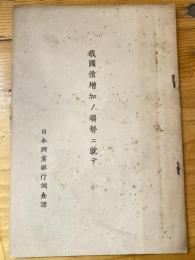 我國債增加ノ趨勢ニ就テ
日本興業銀行調査課